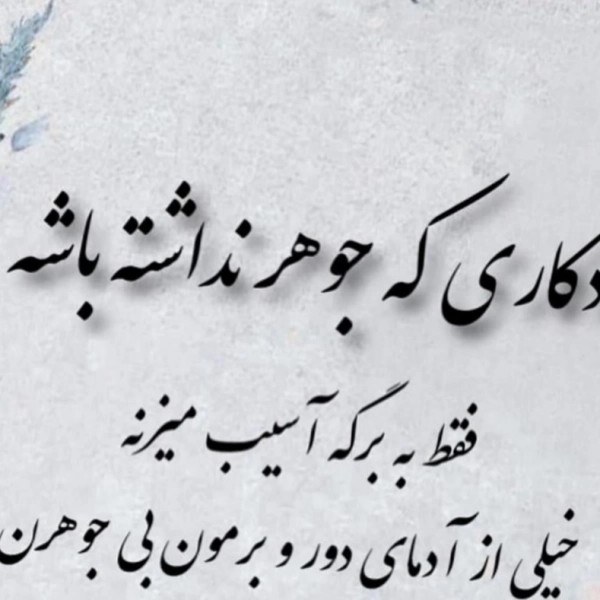 دکاری که جوهر نداشته باشه
فقط به برگه آسیب میزنه
خیلی از آدمای دور و برمون بی جوهرن